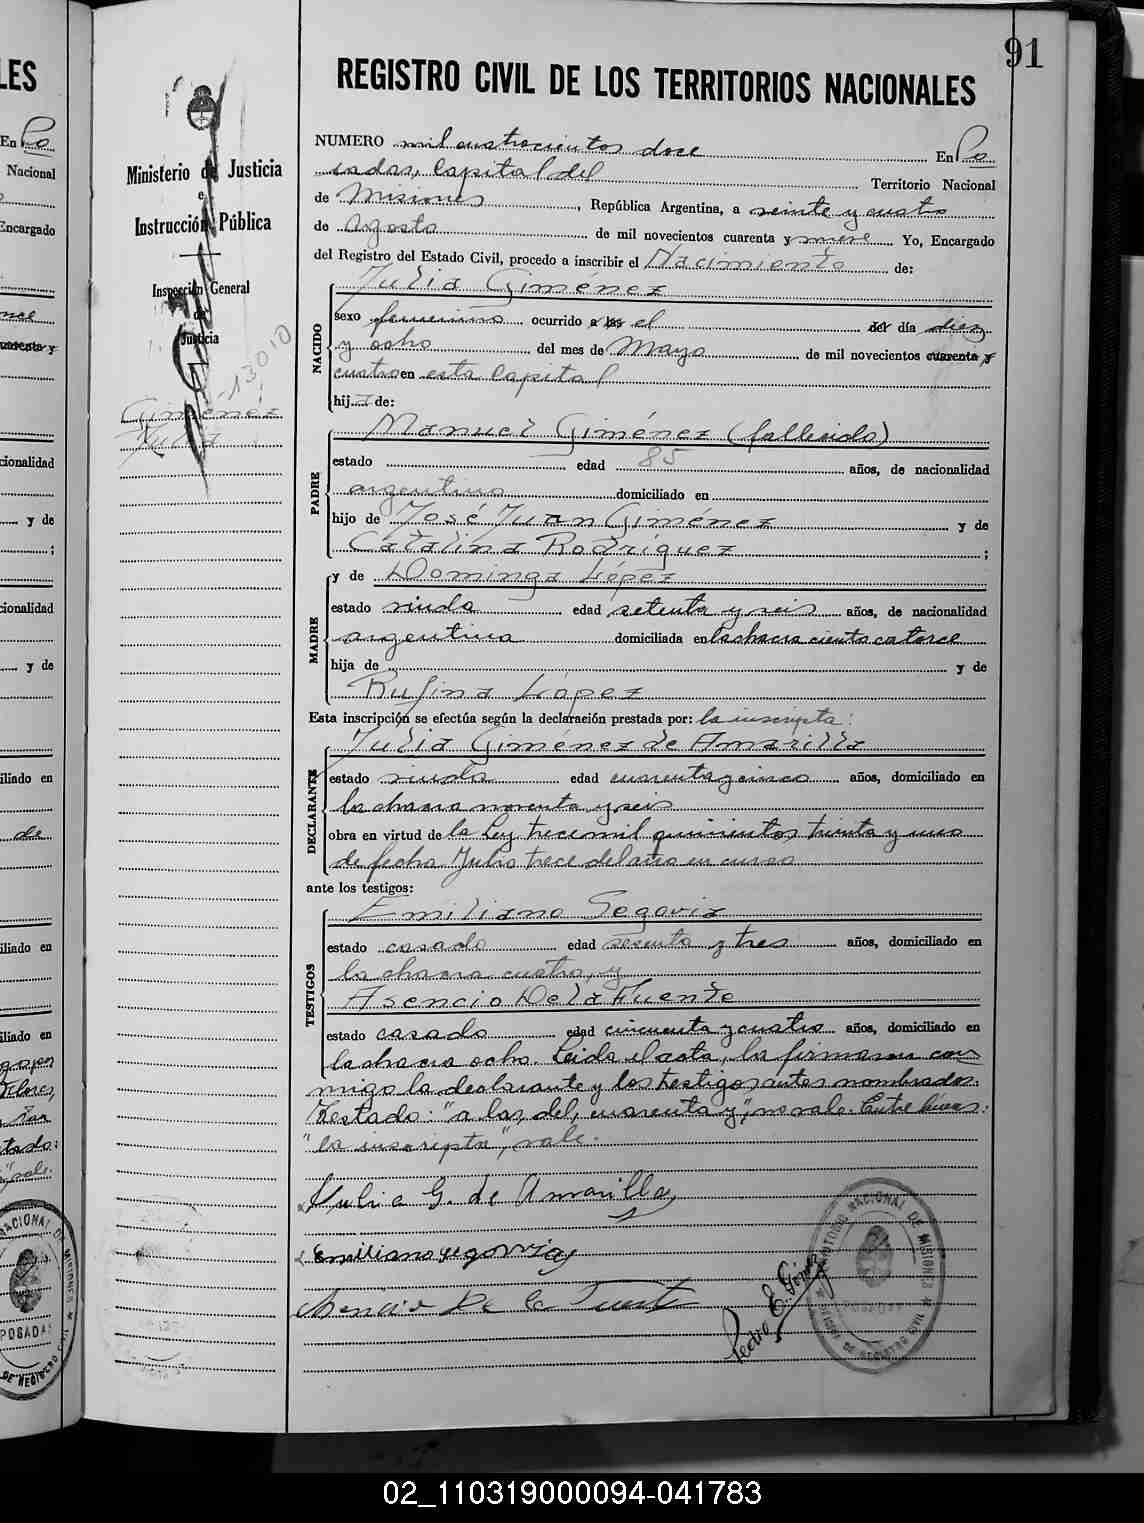 91
REGISTRO CIVIL DE LOS TERRITORIOS NACIONALES
Ministerio de Justicia
e
Instrucción Pública
Inspección General
de
Justicia
13010
Giménez
Julia
NUMERO mil cuatrocientos doce En Po
sadas, Capital del Territorio Nacional
de Misiones, República Argentina, a veinte y cuatro
de Agosto de mil novecientos cuarenta y nueve Yo, Encargado
del Registro del Estado Civil, procedo a inscribir el Nacimiento de:
Julia Giménez
NACIDO
sexo femenino ocurrido a las el del día diez
y ocho del mes de Mayo de mil novecientos cuarenta y
cuatro en esta Capital
hija de:
PADRE
Manuel Giménez (fallecido)
estado edad 85 años, de nacionalidad
argentino domiciliado en
hijo de José Juan Giménez y de
Catalina Rodríguez ;
MADRE
y de Dominga López
estado viuda edad setenta y seis años, de nacionalidad
argentina domiciliada en la chacra ciento catorce
hija de y de
Rufina López
Esta inscripción se efectúa según la declaración prestada por: la inscripta:
DECLARANTE
Julia Giménez de Amarilla
estado viuda edad cuarenta y cinco años, domiciliado en
la chacra noventa y seis
obra en virtud de la Ley trece mil quinientos treinta y uno
de fecha Julio trece del año en curso
ante los testigos:
TESTIGOS
Emiliano Segovia
estado casado edad sesenta y tres años, domiciliado en
la chacra cuatro, y
Asencio De la Fuente
estado casado edad cincuenta y cuatro años, domiciliado en
la chacra ocho. Leida el acta, la firmaron con
migo la declarante y los testigos antes nombrados.
Testado: "a las, del, cuarenta y", no vale. Entre líneas:
"la inscripta", vale.
Julia G. de Amarilla
Emiliano segovia
Asencio De la Fuente
Pedro E. Gómez
TERRITORIO NACIONAL DE MISIONES
POSADAS
02_110319000094-041783